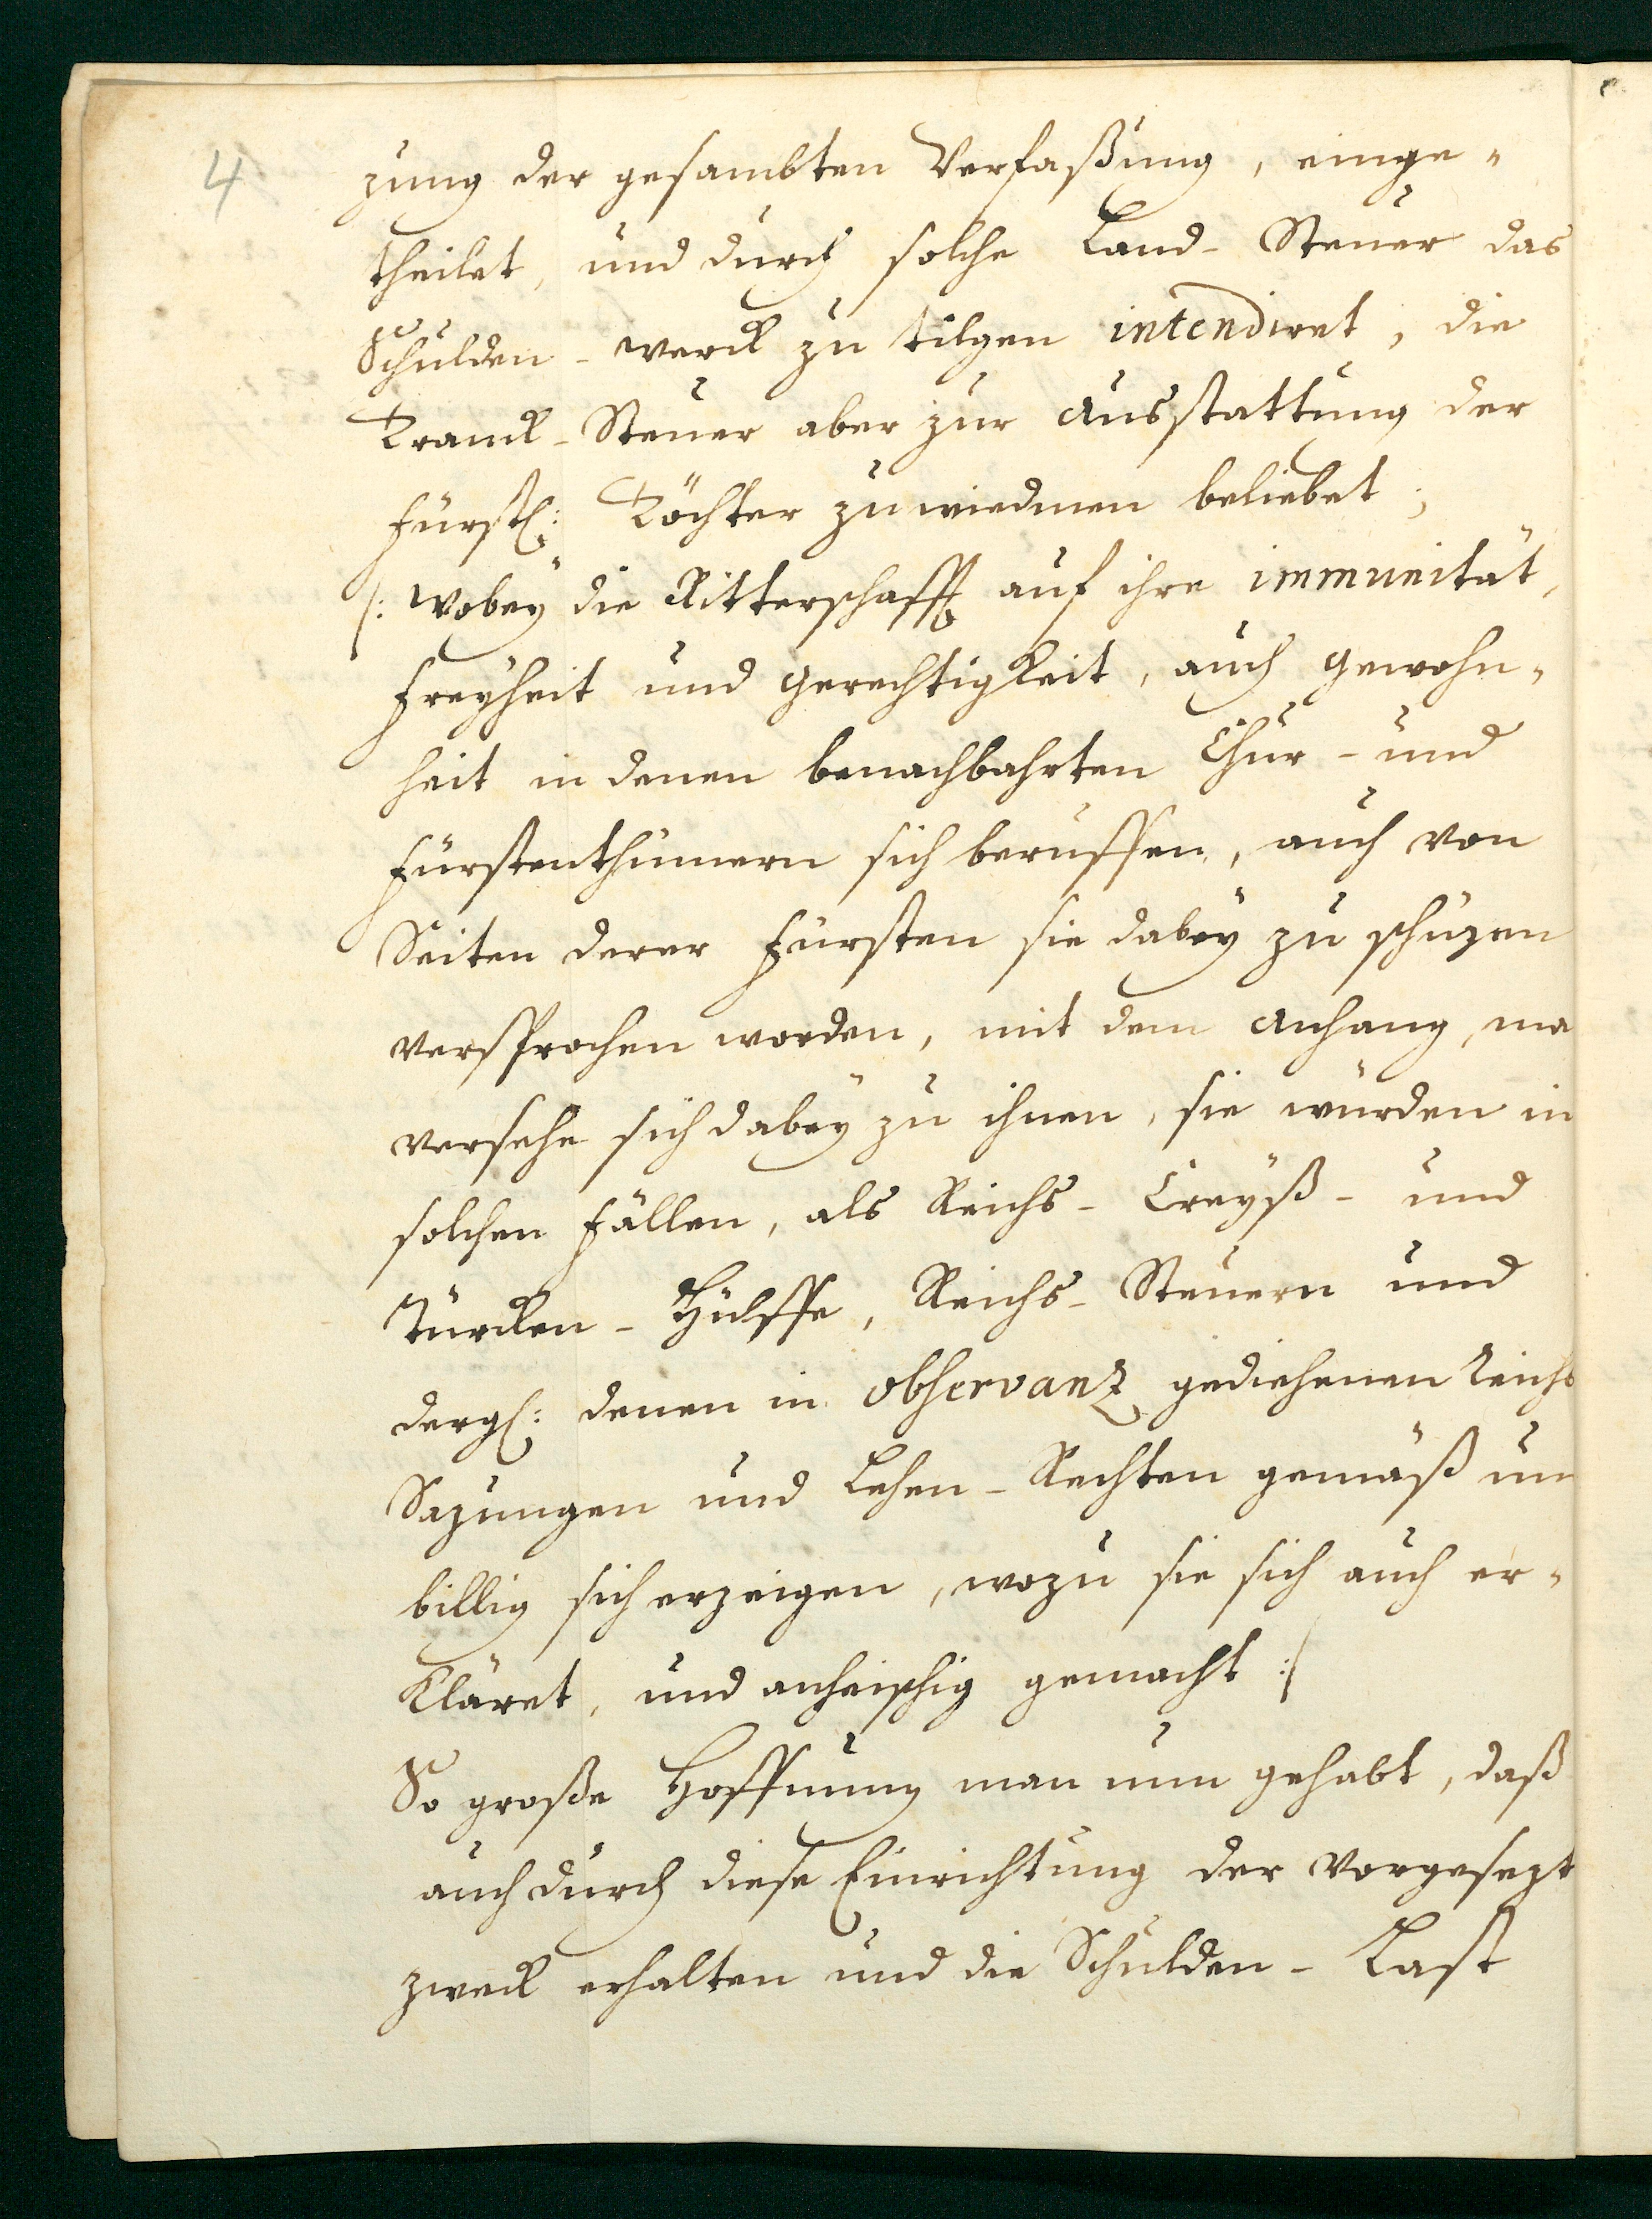 4
zung der gesambten Verfaßung, einge-
theilet, und durch solche Land-Steuer das
Schulden-werck zu tilgen intendiret, die
Tranck-Steuer aber zur Ausstattung der
Fürstl: Töchter zu wiedmen beliebet;
/: Wobeÿ die Ritterschafft auf ihre immunität,
Freÿheit und Gerechtigkeit, auch Gewohn-
heit in denen benachbahrten Chur- und
Fürstenthümern sich beruffen, auch von
Seiten derer Fürsten sie dabeÿ zu schüzen
versprochen worden, mit dem Anhang, ma
versehe sich dabeÿ zu ihnen, sie würden in
solchen Fällen, als Reichs- Creÿß- und
Türcken-Hülffe, Reichs-Steuern und
dergl: denen in observanz gediehenen Reichs
Sazungen und Lehen-Rechten gemäß un
billig sich erzeigen, wozu sie sich auch er-
kläret, und anheischig gemacht :/
So große Hoffnung man nun gehabt, daß
auch durch diese Einrichtung der vorgesezt
Zweck erhalten und die Schulden-Last